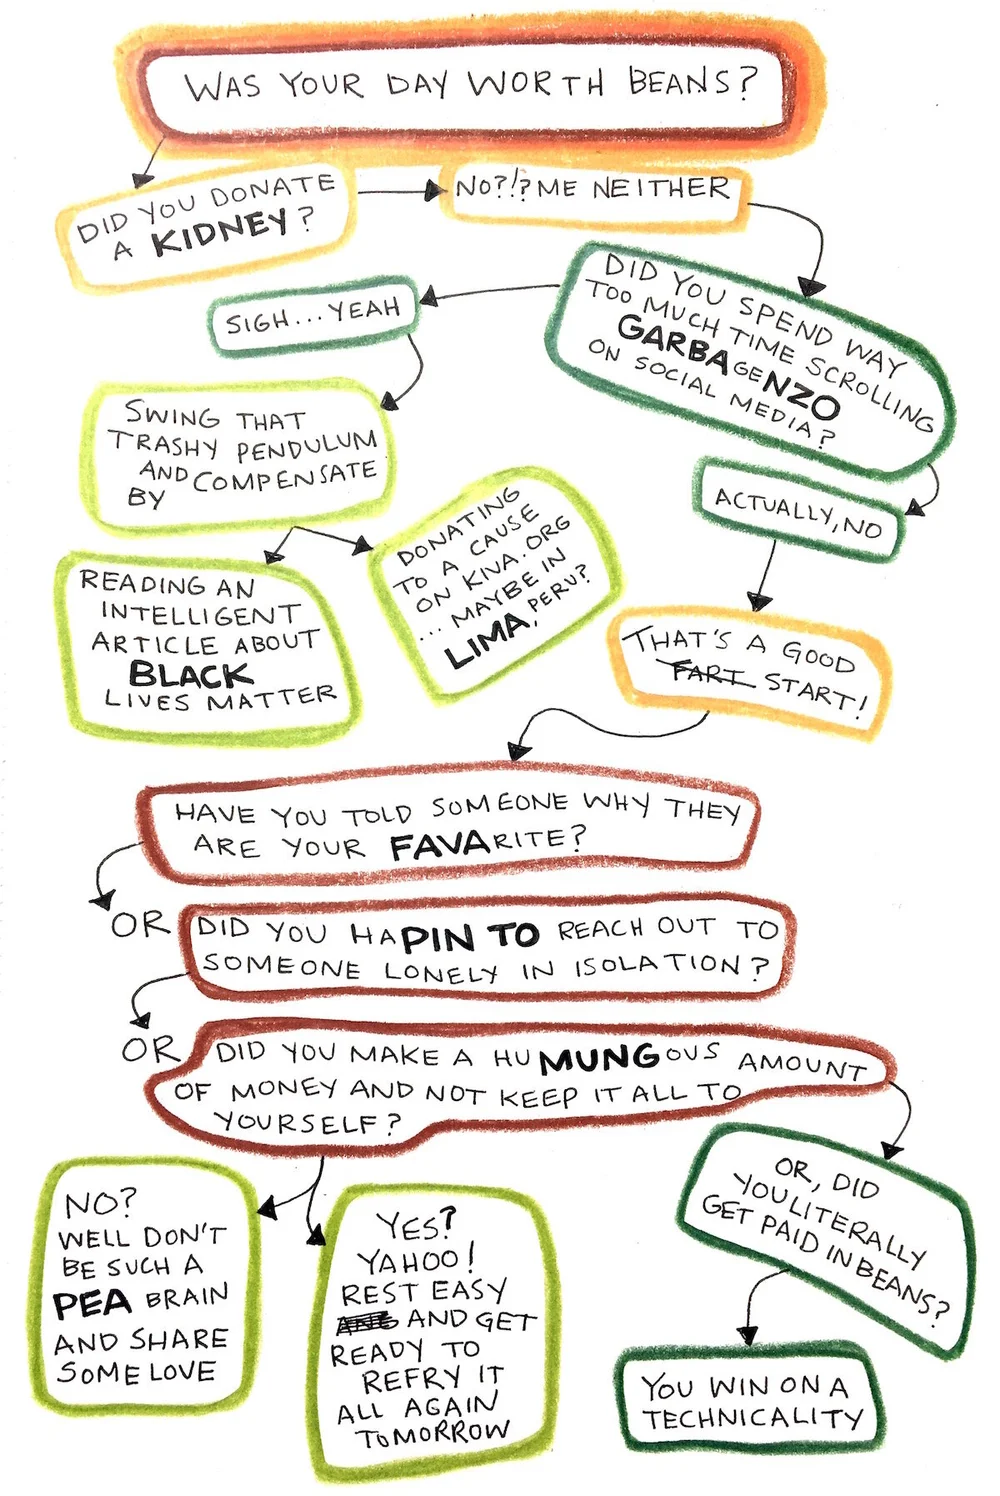 WAS YOUR DAY WORTH BEANS?
DID YOU DONATE
A KIDNEY?
NO?!? ME NEITHER
DID YOU SPEND WAY
TOO MUCH TIME SCROLLING
GARBAGENZO
ON SOCIAL MEDIA?
SIGH... YEAH
SWING THAT
TRASHY PENDULUM
AND COMPENSATE
BY
READING AN
INTELLIGENT
ARTICLE ABOUT
BLACK
LIVES MATTER
DONATING
TO A CAUSE
ON KIVA.ORG
... MAYBE IN
LIMA, PERU?
ACTUALLY, NO
THAT'S A GOOD
FART START!
HAVE YOU TOLD SOMEONE WHY THEY
ARE YOUR FAVARITE?
OR
DID YOU HAPIN TO REACH OUT TO
SOMEONE LONELY IN ISOLATION?
OR
DID YOU MAKE A HUMUNGOUS AMOUNT
OF MONEY AND NOT KEEP IT ALL TO
YOURSELF?
NO?
WELL DON'T
BE SUCH A
PEA BRAIN
AND SHARE
SOME LOVE
YES?
YAHOO!
REST EASY
AND GET
READY TO
REFRY IT
ALL AGAIN
TOMORROW
OR, DID
YOU LITERALLY
GET PAID IN BEANS?
YOU WIN ON A
TECHNICALITY